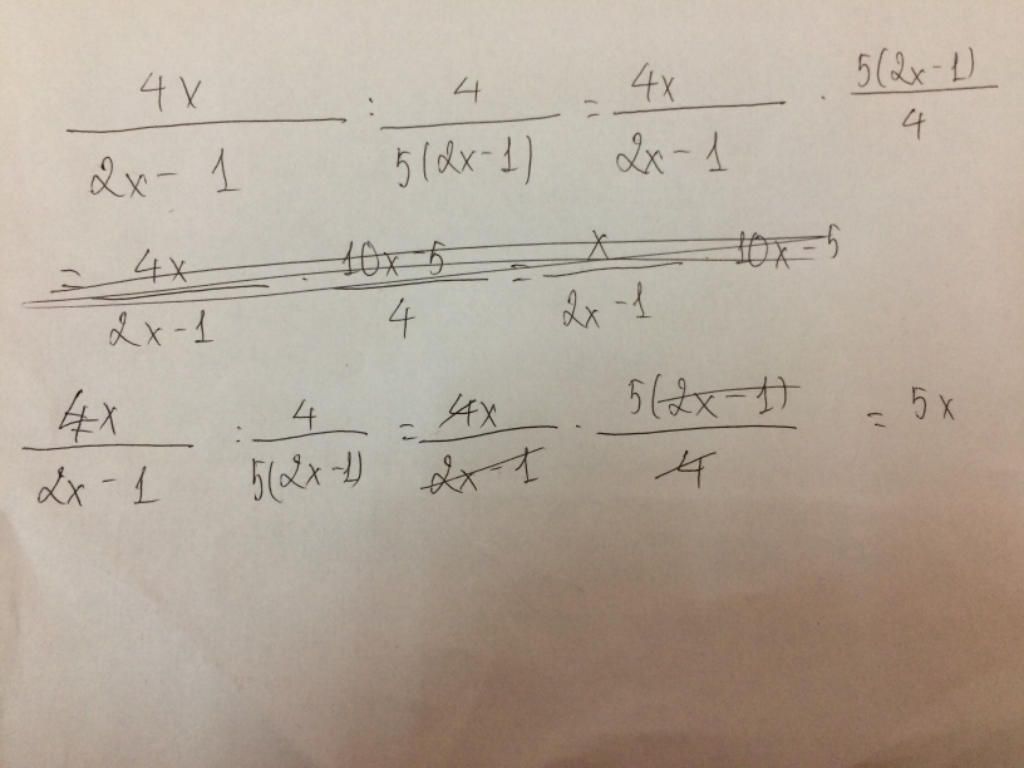 4x / (2x - 1) : 4 / (5(2x-1)) = 4x / (2x - 1) · 5(2x-1) / 4
= 4x / (2x-1) · (10x-5) / 4 = x / (2x-1) · 10x-5
4x / (2x - 1) : 4 / (5(2x-1)) = 4x / (2x-1) · 5(2x-1) / 4 = 5x